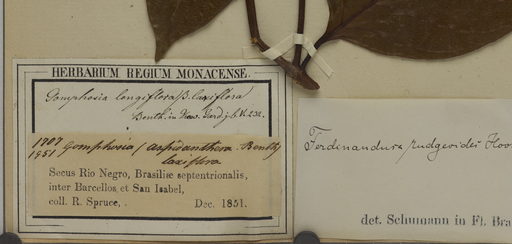 HERBARIUM REGIUM MONACENSE.
Gomphosia longiflora β. laxiflora
Benth. in Hew. Gard. j. b. V. 232.
1907
1951 Gomphosia (aspidanthera Benth)
laxiflora
Secus Rio Negro, Brasiliæ septentrionalis,
inter Barcellos et San Isabel,
coll. R. Spruce, . Dec. 1851.
Ferdinandura rudgeoides Hoo
det. Schumann in Fl. Bra